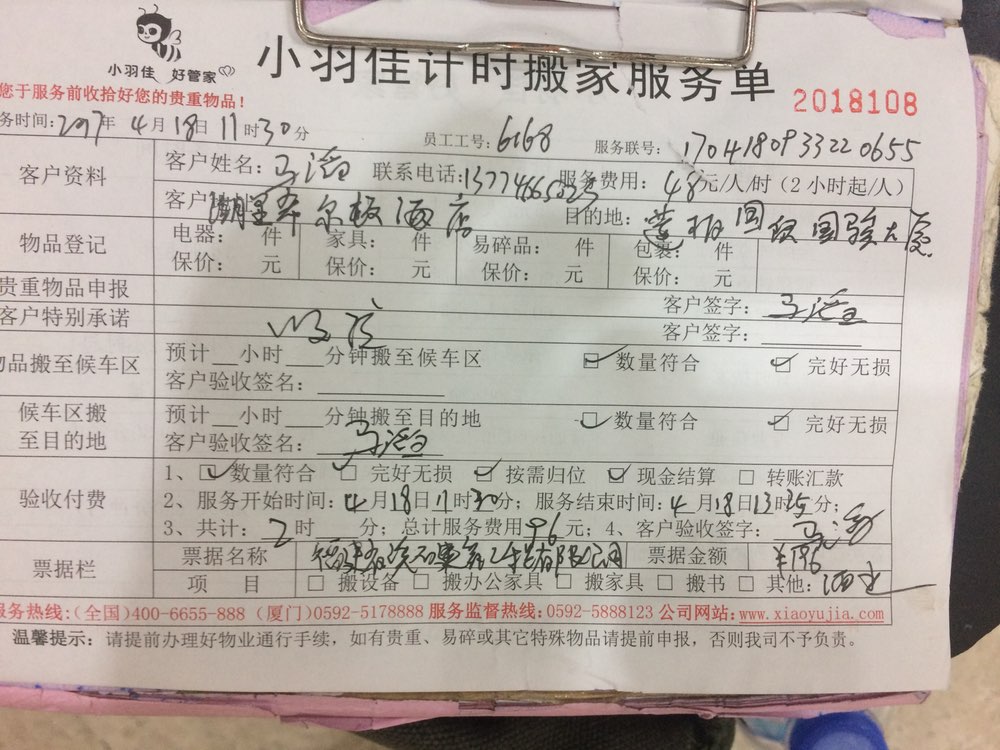 小羽佳 好管家
小羽佳计时搬家服务单
您于服务前收拾好您的贵重物品！
2018108
务时间：2017年4月18日11时30分 员工工号：6168 服务联号：170418093322 0655
客户资料 客户姓名： 联系电话： 服务费用：48元/人/时（2小时起/人）
客户 目的地：
物品登记 电器： 件 家具： 件 易碎品： 件 包裹： 件
保价： 元 保价： 元 保价： 元 保价： 元
贵重物品申报 客户签字：
客户特别承诺 客户签字：
物品搬至候车区 预计__小时___分钟搬至候车区 ☑数量符合 ☑ 完好无损
客户验收签名：
候车区搬至目的地 预计__小时___分钟搬至目的地 ☑数量符合 ☑ 完好无损
客户验收签名：
验收付费 1、☑数量符合 ☑ 完好无损 ☑ 按需归位 ☑ 现金结算 □ 转账汇款
2、服务开始时间：4月18日11时30分；服务结束时间：4月18日13时35分；
3、共计：2时 分；总计服务费用96元；4、客户验收签字：
票据栏 票据名称 有限公司 票据金额 ¥196
项 目 □ 搬设备 □ 搬办公家具 □ 搬家具 □ 搬书 □ 其他：
服务热线:(全国)400-6655-888 (厦门)0592-5178888 服务监督热线:0592-5888123 公司网站:www.xiaoyujia.com
温馨提示：请提前办理好物业通行手续，如有贵重、易碎或其它特殊物品请提前申报，否则我司不予负责。